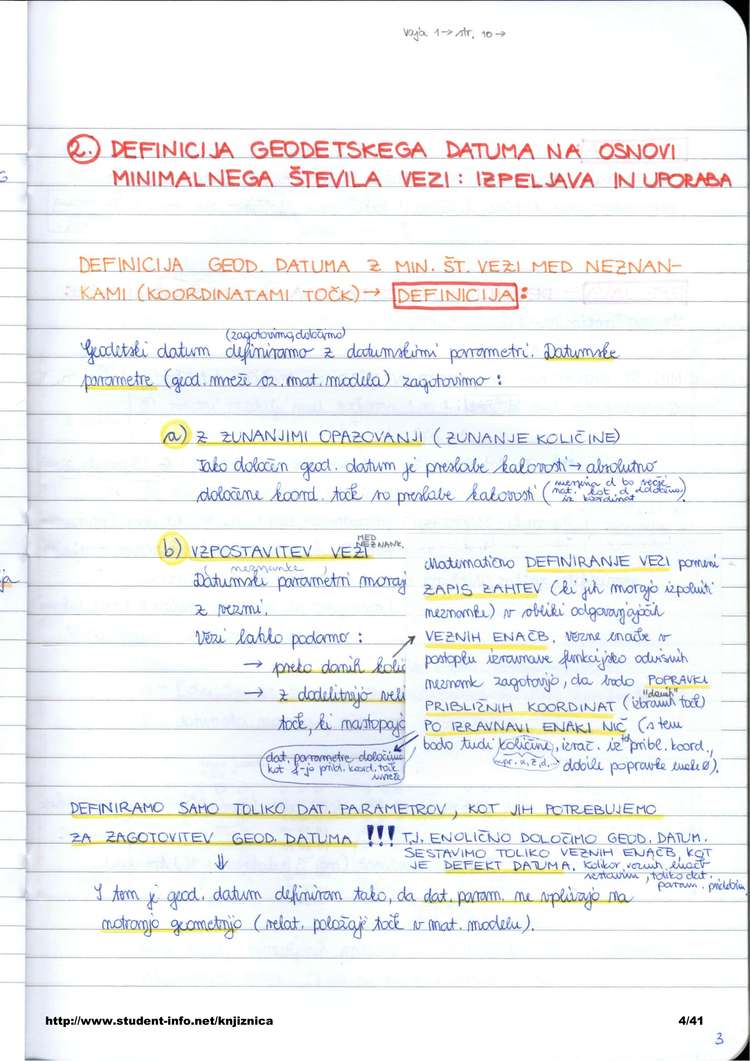 Vaja 1 → str. 10 →
2. DEFINICIJA GEODETSKEGA DATUMA NA OSNOVI
MINIMALNEGA ŠTEVILA VEZI: IZPELJAVA IN UPORABA
DEFINICIJA GEOD. DATUMA Z MIN. ŠT. VEZI MED NEZNAN-
KAMI (KOORDINATAMI TOČK) → DEFINICIJA:
(zagotovimo, določimo)
Geodetski datum definiramo z datumskimi parametri. Datumske
parametre (geod. mreže oz. mat. modela) zagotovimo:
a) Z ZUNANJIMI OPAZOVANJI (ZUNANJE KOLIČINE)
Tako določen geod. datum je preslabe kakovosti → absolutno
določene koord. točk so preslabe kakovosti (menjava d bo večja
nat. kot d določena
iz koordinat).
b) VZPOSTAVITEV VEZI MED
NEZNANK.
neznanke
Datumski parametri moraj
z vezmi.
Vezi lahko podamo:
→ preko danih količ
→ z dodelitvijo veli
točk, ki nastopajo
dat. parametre določimo
kot f-jo pribl. koord. točk
mreže
Matematično DEFINIRANJE VEZI pomeni
ZAPIS ZAHTEV (ki jih morajo izpolniti
neznanke) v obliki odgovarjajočih
VEZNIH ENAČB. Vezne enačbe v
postopku izravnave funkcijsko odvisnih
neznank zagotovijo, da bodo POPRAVKI
PRIBLIŽNIH KOORDINAT (izbranih "danih" točk)
PO IZRAVNAVI ENAKI NIČ (s tem
bodo tudi količine, izrač. iz teh pribl. koord.,
npr. α, z, d, dobile popravke enake 0).
DEFINIRAMO SAMO TOLIKO DAT. PARAMETROV, KOT JIH POTREBUJEMO
ZA ZAGOTOVITEV GEOD. DATUMA !!! TJ. ENOLIČNO DOLOČIMO GEOD. DATUM.
SESTAVIMO TOLIKO VEZNIH ENAČB, KOT
JE DEFEKT DATUMA. Kolikor veznih enačb
sestavim, toliko dat.
param. pridobim
↓
S tem je geod. datum definiran tako, da dat. param. ne vplivajo na
notranjo geometrijo (relat. položaji točk v mat. modelu).
http://www.student-info.net/knjiznica
4/41
3